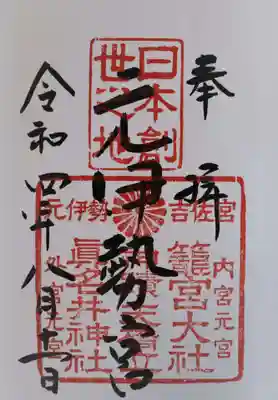 奉拝
日本創
世之地
元伊勢宮
令和四年八月十一日
元伊勢
吉佐宮
内宮元宮
籠宮大社
天橋立
眞名井神社
外宮元宮